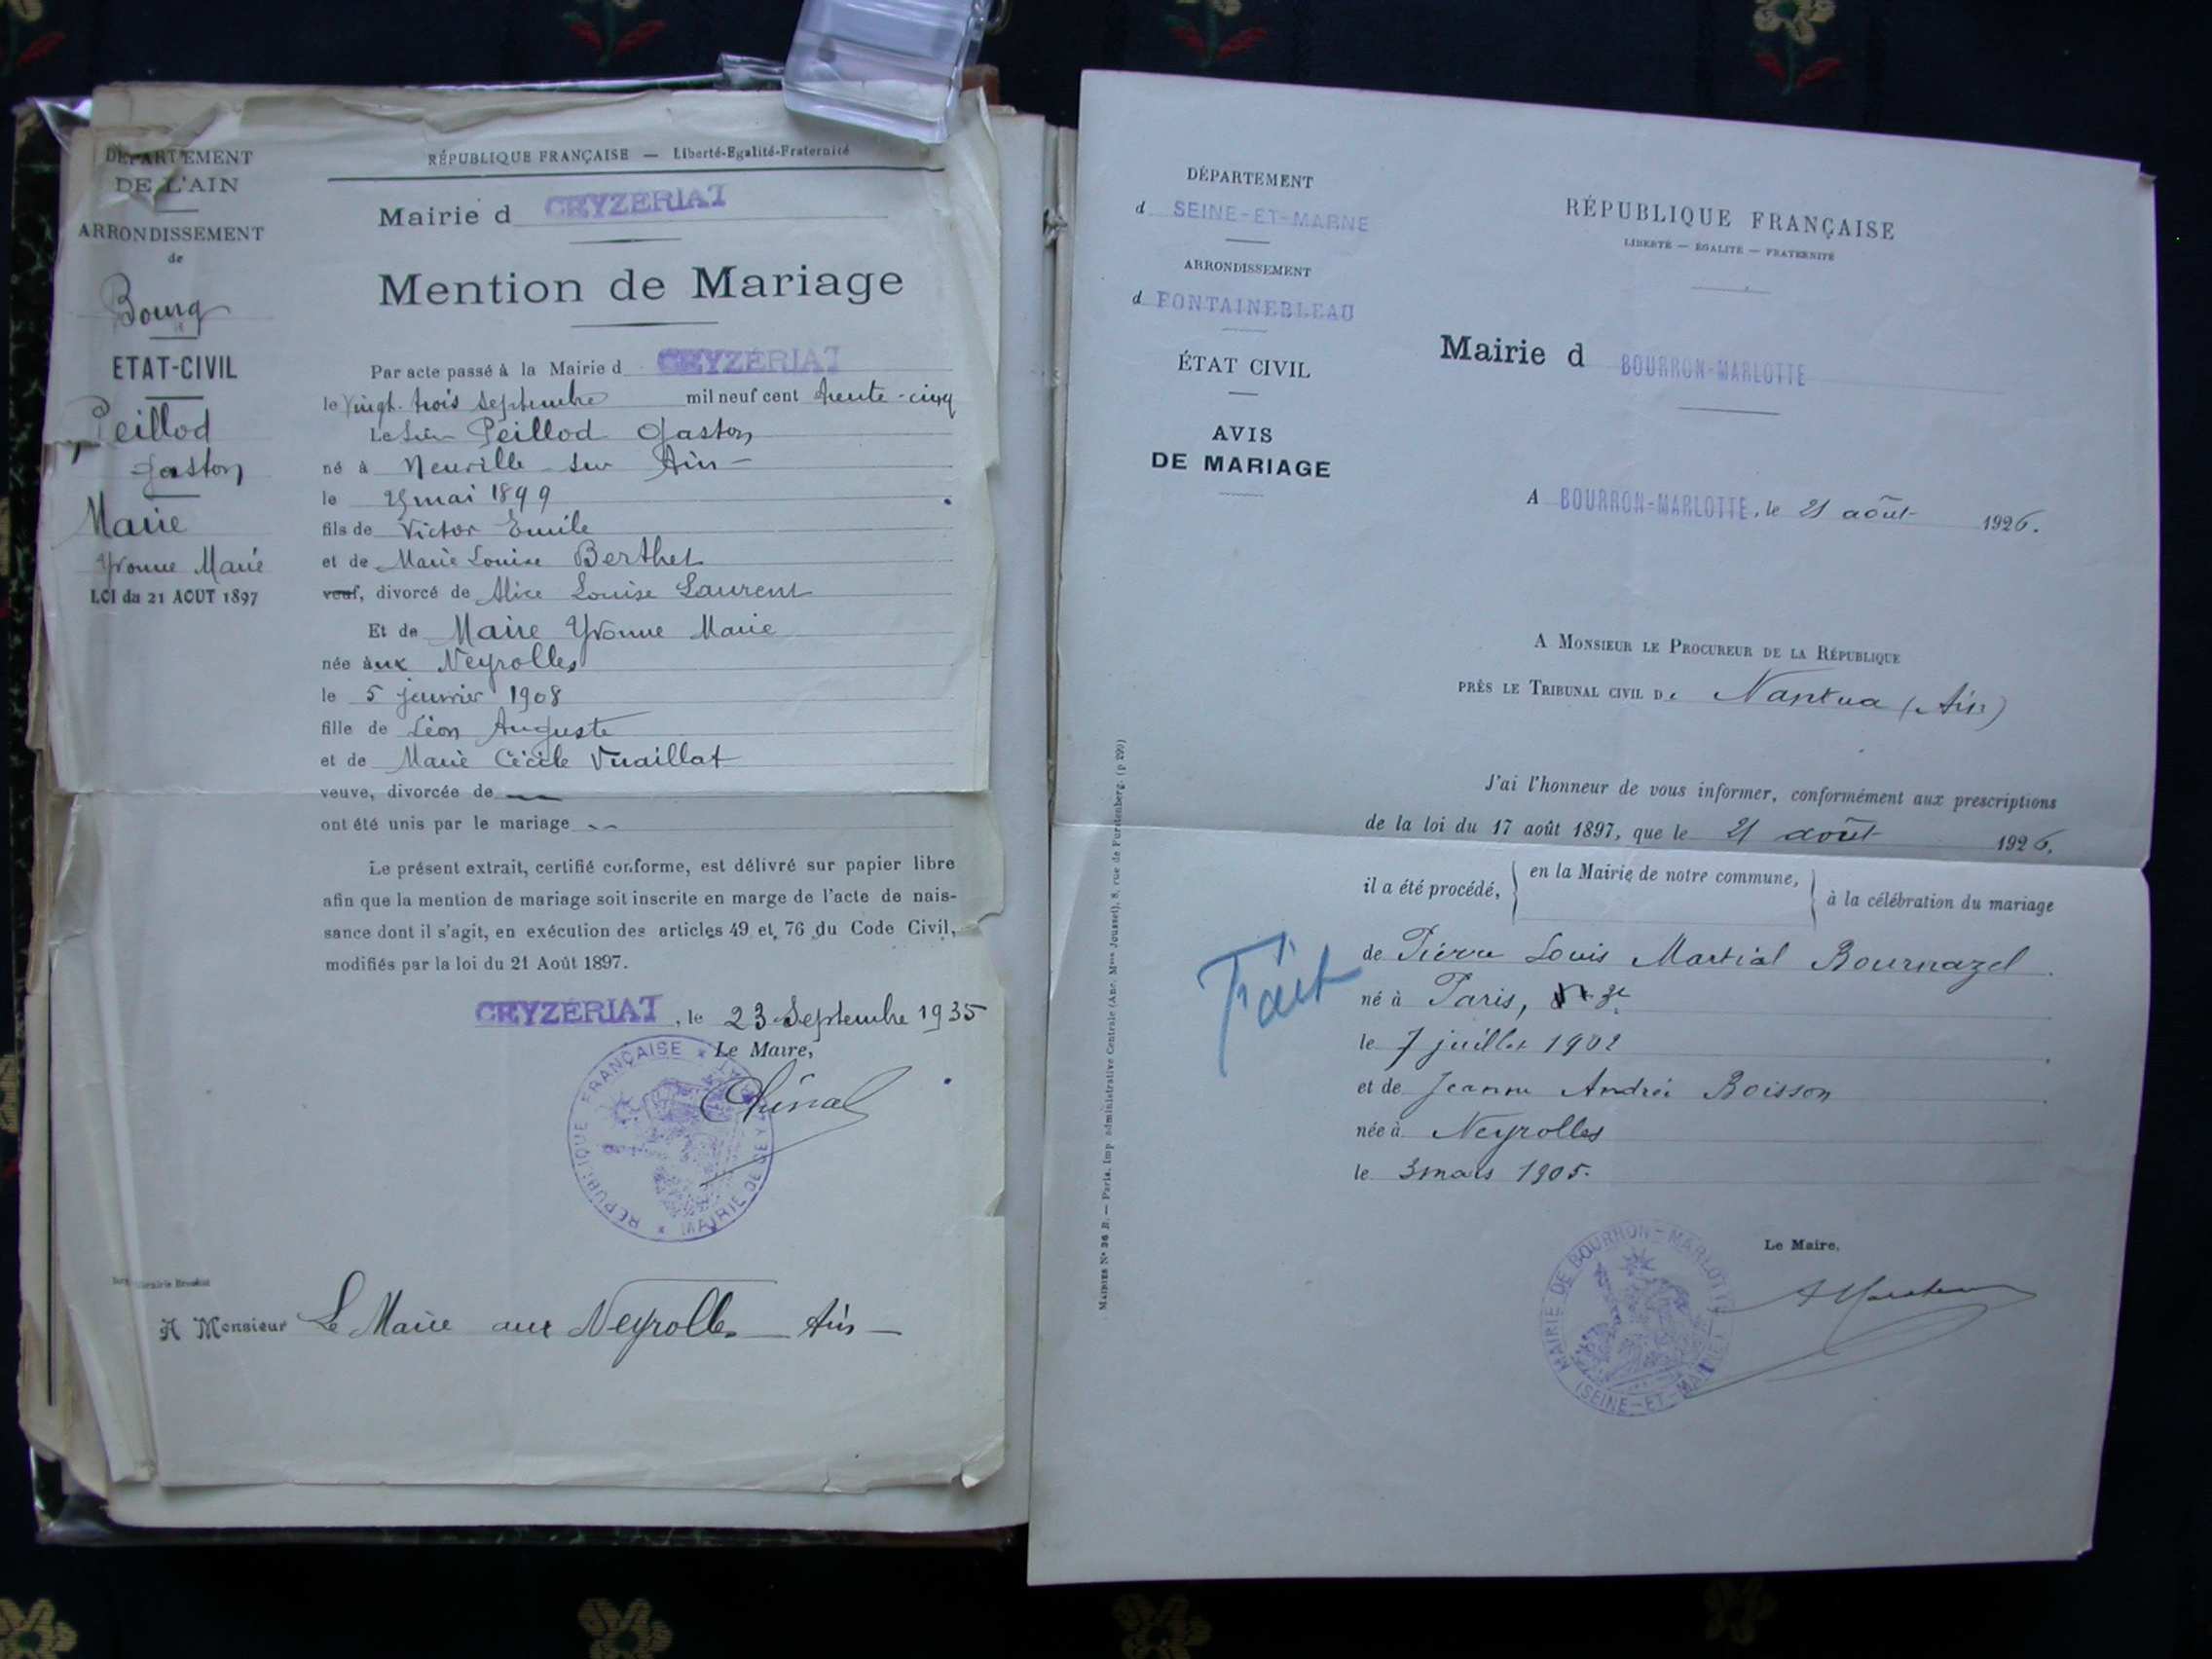 DÉPARTEMENT
DE L'AIN
ARRONDISSEMENT
de
Bourg
ETAT-CIVIL
Peillod
Gaston
Marie
Yvonne Marie
LOI du 21 AOUT 1897
RÉPUBLIQUE FRANÇAISE — Liberté-Egalité-Fraternité
Mairie d CEYZÉRIAT
Mention de Mariage
Par acte passé à la Mairie d CEYZÉRIAT
le Vingt-trois Septembre mil neuf cent trente-cinq
Le Sieur Peillod Gaston
né à Neuville sur Ain
le 25 mai 1899
fils de Victor Emile
et de Marie Louise Berthet
veuf, divorcé de Alice Louise Laurent
Et de Maire Yvonne Marie
née aux Neyrolles
le 5 janvier 1908
fille de Léon Auguste
et de Marie Cécile Vuaillat
veuve, divorcée de
ont été unis par le mariage
Le présent extrait, certifié conforme, est délivré sur papier libre
afin que la mention de mariage soit inscrite en marge de l'acte de nais-
sance dont il s'agit, en exécution des articles 49 et 76 du Code Civil,
modifiés par la loi du 21 Août 1897.
CEYZÉRIAT, le 23 Septembre 1935
Le Maire,
RÉPUBLIQUE FRANÇAISE * MAIRIE DE CEYZÉRIAT *
A Monsieur Le Maire aux Neyrolles Ain
DÉPARTEMENT
d SEINE-ET-MARNE
ARRONDISSEMENT
d FONTAINEBLEAU
ÉTAT CIVIL
AVIS
DE MARIAGE
RÉPUBLIQUE FRANÇAISE
LIBERTÉ — ÉGALITÉ — FRATERNITÉ
Mairie d BOURRON-MARLOTTE
A BOURRON-MARLOTTE, le 21 août 1926.
A MONSIEUR LE PROCUREUR DE LA RÉPUBLIQUE
PRÈS LE TRIBUNAL CIVIL De Nantua (Ain)
J'ai l'honneur de vous informer, conformément aux prescriptions
de la loi du 17 août 1897, que le 21 août 1926,
il a été procédé, en la Mairie de notre commune, à la célébration du mariage
de Pierre Louis Martial Bournazel
né à Paris, 3e
le 7 juillet 1902
et de Jeanne Andrée Boisson
née à Neyrolles
le 3 mars 1905.
Fait
Le Maire,
MAIRIE DE BOURRON-MARLOTTE (SEINE-ET-MARNE)
MAIRIES No 36 B. — Paris, Imp. administrative Centrale (Anc. Mon Jousset), 8, rue de Furstenberg. (p 290)